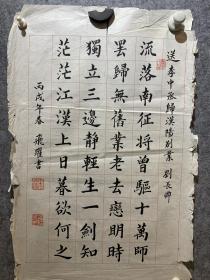 送李中丞歸漢陽別業 劉長卿
流落南征將曾驅十萬師
罷歸無舊業老去戀明時
獨立三邊靜輕生一劍知
茫茫江漢上日暮欲何之
丙戌年春 飛躍書